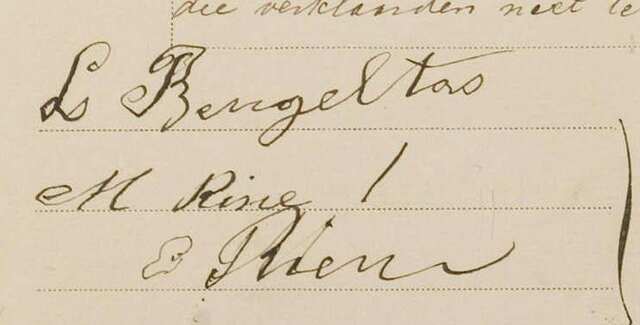 die verklaarden niet te
Ls Bengeltas
M Rine
E Rien